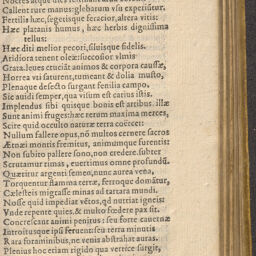 Callent rure manus: glebarum vsu expetiitur.
Fertilis hæc, segetisque feracior, altera vitis:
Hæc platanis humus, hæc herbis dignissima
tellus:
Hæc diti melior pecori, siluisque fidelis.
Aridiora tenent oleæ: succosior vlmis
Grata. leues cruciāt animos & corpora caussæ,
Horrea vti saturent, tumeant & dolia musto,
Plenaque desecto surgant fœnilia campo.
Sic auidi semper, qua visum est carius istis.
Implendus sibi quisque bonis est artibus. illæ
Sunt animi fruges: hæc rerum maxima merces,
Scire quid occulto naturæ terra coërcet:
Nullum fallere opus, nō multos cernere sacros
Ætnæi montis fremitus, animumque furentis:
Non subito pallere sono, non credere. subter
Scrutamur rimas, euertimus omne profundū.
Quæritur argenti semen, nunc aurea vena,
Torquentur flamma terræ, ferroque domātur,
Cælestiseis migrasse minas ad tartara mundi.
Nosse quid impediat vētos, qd nutriat igneis:
Vnde repente quies, & multo fœdere pax sit.
Concrescant animi penitus: seu forte cauernæ
Introitusque ipsi seruent: seu terra minutis
Rara foraminibus, ne venis abstrahat auras.
Plenius hoc etiam rigido qua vertice surgit,